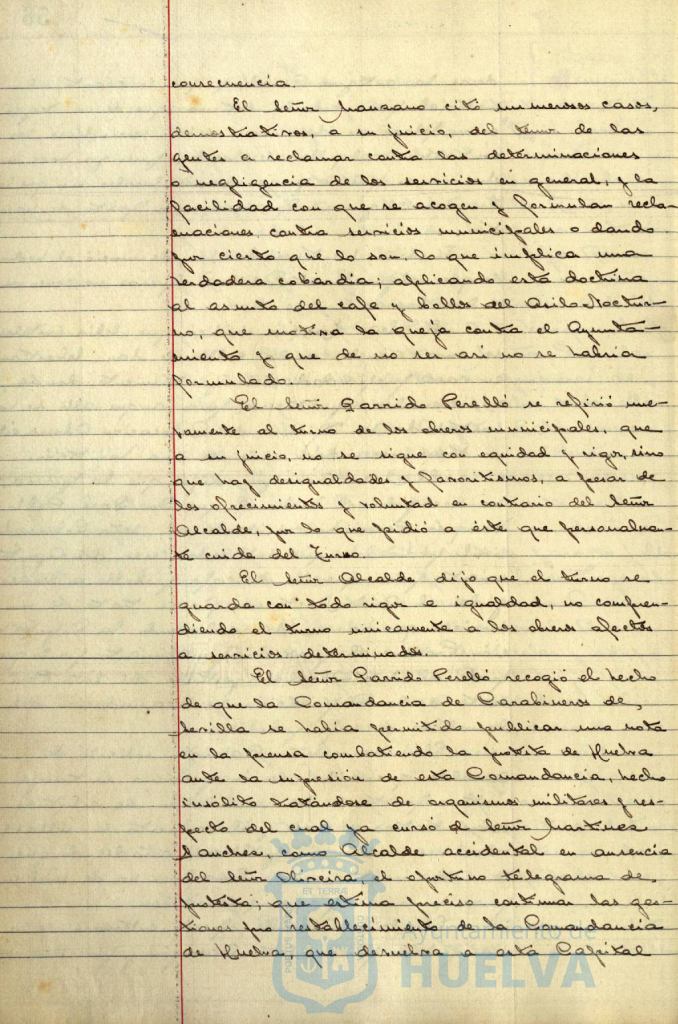 consecuencia.
El Señor Manzano citó numerosos casos,
demostrativos, a su juicio, del temor de las
gentes a reclamar contra las determinaciones
o negligencia de los servicios en general, y la
facilidad con que se acogen y formulan recla-
maciones contra servicios municipales o dando
por cierto que lo son, lo que implica una
verdadera cobardia; aplicando esta doctrina
al asunto del cafe y bollos del Asilo Noctur-
no, que motiva la queja contra el Ayunta-
miento y que de no ser asi no se habria
formulado.
El Señor Garrido Perelló se refirió nue-
vamente al turno de los obreros municipales, que
a su juicio, no se sigue con equidad y rigor, sino
que hay desigualdades y favoritismos, a pesar de
los ofrecimientos y voluntad en contrario del Señor
Alcalde, por lo que pidió a éste que personalmen-
te cuide del Turno.
El Señor Alcalde dijo que el turno se
guarda con todo rigor e igualdad, no compren-
diendo el turno unicamente a los obreros afectos
a servicios determinados.
El Señor Garrido Perelló recogió el hecho
de que la Comandancia de Carabineros de
Sevilla se habia permitido publicar una nota
en la prensa combatiendo la protesta de Huelva
ante la supresión de esta Comandancia, hecho
insólito tratándose de organismos militares y res-
pecto del cual ya cursó el Señor Martinez
Sanchez, como Alcalde accidental en ausencia
del Señor Oliveira, el oportuno telegrama de
protesta; que estima preciso continuar las ges-
tiones pro restablecimiento de la Comandancia
de Huelva, que devuelva a esta Capital
Ayuntamiento de
HUELVA